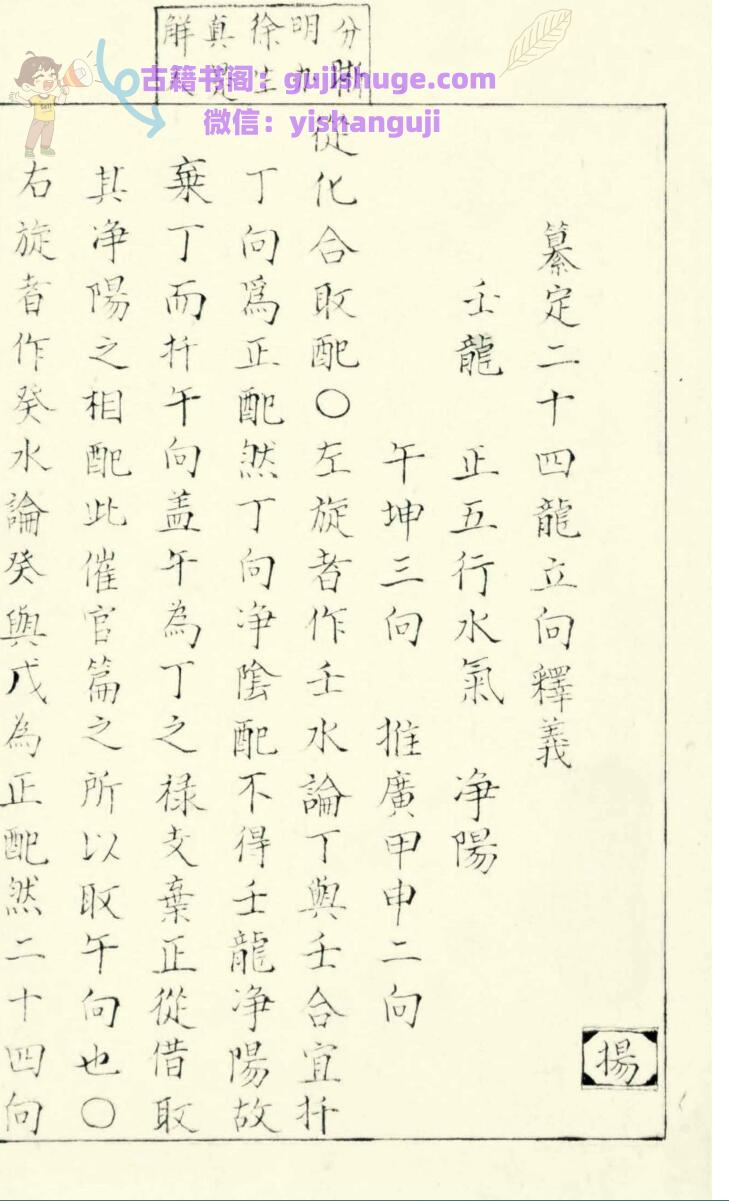 古籍书阁：gujishuge.com
微信：yishanguji
分
明
徐
真
解
揚
纂定二十四龍立向釋義
壬龍　正五行水氣　净陽
午坤三向　推廣甲申二向
從化合取配〇左旋者作壬水論丁與壬合宜扦
丁向爲正配然丁向净陰配不得壬龍净陽故
棄丁而扦午向盖午為丁之禄支棄正從借取
其净陽之相配此催官篇之所以取午向也〇
右旋者作癸水論癸與戊為正配然二十四向